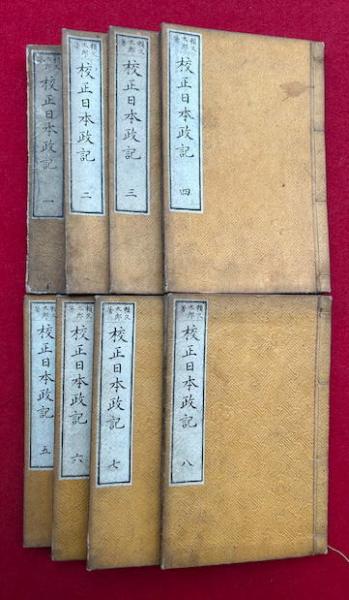 賴久太郎著
校正日本政記 一
賴久太郎著
校正日本政記 二
賴久太郎著
校正日本政記 三
賴久太郎著
校正日本政記 四
賴久太郎著
校正日本政記 五
賴久太郎著
校正日本政記 六
賴久太郎著
校正日本政記 七
賴久太郎著
校正日本政記 八